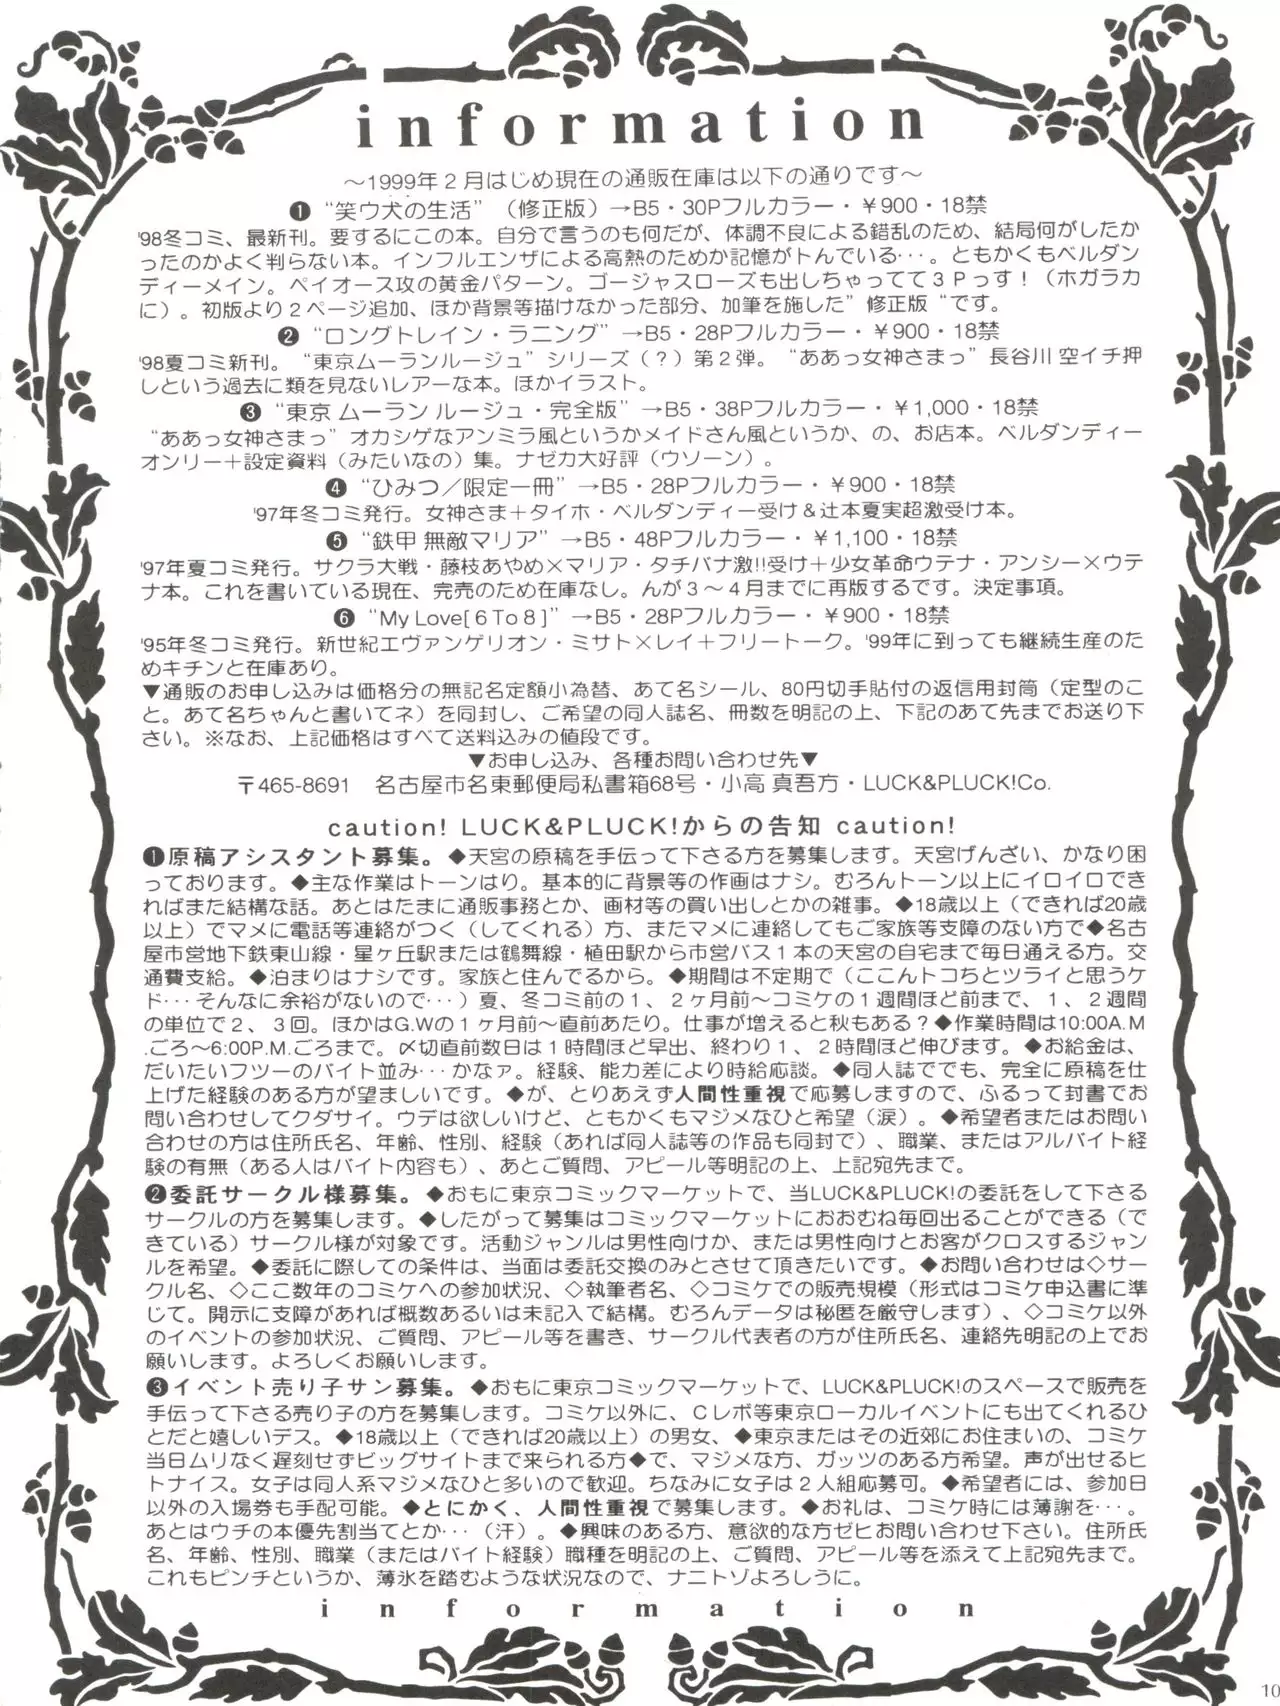 information
～1999年2月はじめ現在の通販在庫は以下の通りです～
❶ “笑ウ犬の生活”（修正版）→B5・30Pフルカラー・￥900・18禁
'98冬コミ、最新刊。要するにこの本。自分で言うのも何だが、体調不良による錯乱のため、結局何がしたか
ったのかよく判らない本。インフルエンザによる高熱のためか記憶がトんでいる･･･。ともかくもベルダン
ディーメイン。ペイオース攻の黄金パターン。ゴージャスローズも出しちゃってて3Pっす！（ホガラカ
に）。初版より2ページ追加、ほか背景等描けなかった部分、加筆を施した”修正版“です。
❷ “ロングトレイン・ラニング”→B5・28Pフルカラー・￥900・18禁
'98夏コミ新刊。“東京ムーランルージュ”シリーズ（？）第2弾。“ああっ女神さまっ”長谷川 空イチ押
しという過去に類を見ないレアーな本。ほかイラスト。
❸ “東京 ムーラン ルージュ・完全版”→B5・38Pフルカラー・￥1,000・18禁
“ああっ女神さまっ”オカシゲなアンミラ風というかメイドさん風というか、の、お店本。ベルダンディー
オンリー＋設定資料（みたいなの）集。ナゼカ大好評（ウソーン）。
❹ “ひみつ／限定一冊”→B5・28Pフルカラー・￥900・18禁
'97年冬コミ発行。女神さま＋タイホ・ベルダンディー受け＆辻本夏実超激受け本。
❺ “鉄甲 無敵マリア”→B5・48Pフルカラー・￥1,100・18禁
'97年夏コミ発行。サクラ大戦・藤枝あやめ×マリア・タチバナ激!!受け＋少女革命ウテナ・アンシー×ウテ
ナ本。これを書いている現在、完売のため在庫なし。んが3～4月までに再版するです。決定事項。
❻ “My Love[6To8]”→B5・28Pフルカラー・￥900・18禁
'95年冬コミ発行。新世紀エヴァンゲリオン・ミサト×レイ＋フリートーク。'99年に到っても継続生産のた
めキチンと在庫あり。
▼通販のお申し込みは価格分の無記名定額小為替、あて名シール、80円切手貼付の返信用封筒（定型のこ
と。あて名ちゃんと書いてネ）を同封し、ご希望の同人誌名、冊数を明記の上、下記のあて先までお送り下
さい。※なお、上記価格はすべて送料込みの値段です。
▼お申し込み、各種お問い合わせ先▼
〒465-8691　名古屋市名東郵便局私書箱68号・小高 真吾方・LUCK&PLUCK!Co.
caution! LUCK&PLUCK!からの告知 caution!
❶原稿アシスタント募集。◆天宮の原稿を手伝って下さる方を募集します。天宮げんざい、かなり困
っております。◆主な作業はトーンはり。基本的に背景等の作画はナシ。むろんトーン以上にイロイロでき
ればまた結構な話。あとはたまに通販事務とか、画材等の買い出しとかの雑事。◆18歳以上（できれば20歳
以上）でマメに電話等連絡がつく（してくれる）方、またマメに連絡してもご家族等支障のない方で◆名古
屋市営地下鉄東山線・星ヶ丘駅または鶴舞線・植田駅から市営バス1本の天宮の自宅まで毎日通える方。交
通費支給。◆泊まりはナシです。家族と住んでるから。◆期間は不定期で（ここんトコちとツライと思うケ
ド･･･そんなに余裕がないので･･･）夏、冬コミ前の1、2ヶ月前～コミケの1週間ほど前まで、1、2週間
の単位で2、3回。ほかはG.Wの1ヶ月前～直前あたり。仕事が増えると秋もある？◆作業時間は10:00A.M
.ごろ～6:00P.M.ごろまで。〆切直前数日は1時間ほど早出、終わり1、2時間ほど伸びます。◆お給金は、
だいたいフツーのバイト並み･･･かなァ。経験、能力差により時給応談。◆同人誌ででも、完全に原稿を仕
上げた経験のある方が望ましいです。◆が、とりあえず人間性重視で応募しますので、ふるって封書でお
問い合わせしてクダサイ。ウデは欲しいけど、ともかくもマジメなひと希望（涙）。◆希望者またはお問い
合わせの方は住所氏名、年齢、性別、経験（あれば同人誌等の作品も同封で）、職業、またはアルバイト経
験の有無（ある人はバイト内容も）、あとご質問、アピール等明記の上、上記宛先まで。
❷委託サークル様募集。◆おもに東京コミックマーケットで、当LUCK&PLUCK!の委託をして下さる
サークルの方を募集します。◆したがって募集はコミックマーケットにおおむね毎回出ることができる（で
きている）サークル様が対象です。活動ジャンルは男性向けか、または男性向けとお客がクロスするジャン
ルを希望。◆委託に際しての条件は、当面は委託交換のみとさせて頂きたいです。◆お問い合わせは◇サー
クル名、◇ここ数年のコミケへの参加状況、◇執筆者名、◇コミケでの販売規模（形式はコミケ申込書に準
じて。開示に支障があれば概数あるいは未記入で結構。むろんデータは秘匿を厳守します）、◇コミケ以外
のイベントの参加状況、ご質問、アピール等を書き、サークル代表者の方が住所氏名、連絡先明記の上でお
願いします。よろしくお願いします。
❸イベント売り子サン募集。◆おもに東京コミックマーケットで、LUCK&PLUCK!のスペースで販売を
手伝って下さる売り子の方を募集します。コミケ以外に、Cレボ等東京ローカルイベントにも出てくれるひ
とだと嬉しいデス。◆18歳以上（できれば20歳以上）の男女、◆東京またはその近郊にお住まいの、コミケ
当日ムリなく遅刻せずビッグサイトまで来られる方◆で、マジメな方、ガッツのある方希望。声が出せるヒ
トナイス。女子は同人系マジメなひと多いので歓迎。ちなみに女子は2人組応募可。◆希望者には、参加日
以外の入場券も手配可能。◆とにかく、人間性重視で募集します。◆お礼は、コミケ時には薄謝を･･･。
あとはウチの本優先割当てとか･･･（汗）。◆興味のある方、意欲的な方ゼヒお問い合わせ下さい。住所氏
名、年齢、性別、職業（またはバイト経験）職種を明記の上、ご質問、アピール等を添えて上記宛先まで。
これもピンチというか、薄氷を踏むような状況なので、ナニトゾよろしうに。
information
10